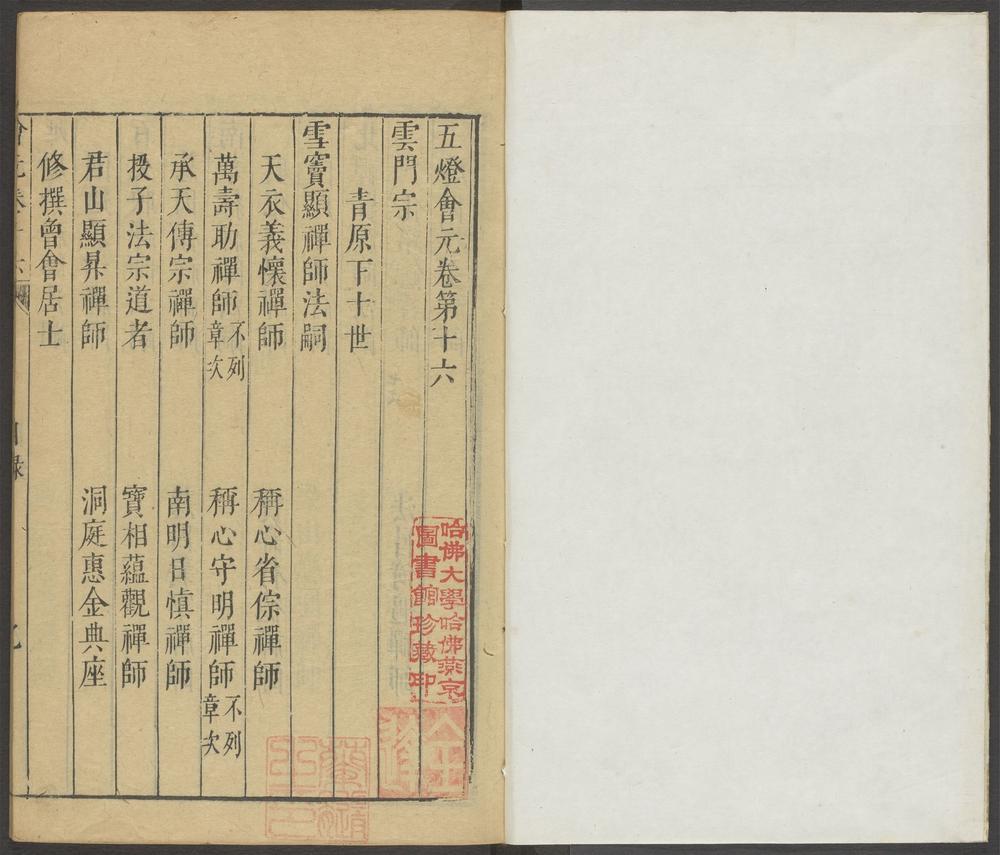 五燈會元卷第十六
雲門宗
青原下十世
雪竇顯禪師法嗣
天衣義懷禪師
稱心省倧禪師
萬壽助禪師不列章次
稱心守明禪師不列章次
承天傳宗禪師
南明日慎禪師
投子法宗道者
寶相蘊觀禪師
君山顯昇禪師
洞庭惠金典座
修撰曾會居士
目錄
哈佛大學哈佛燕京
圖書館珍藏印